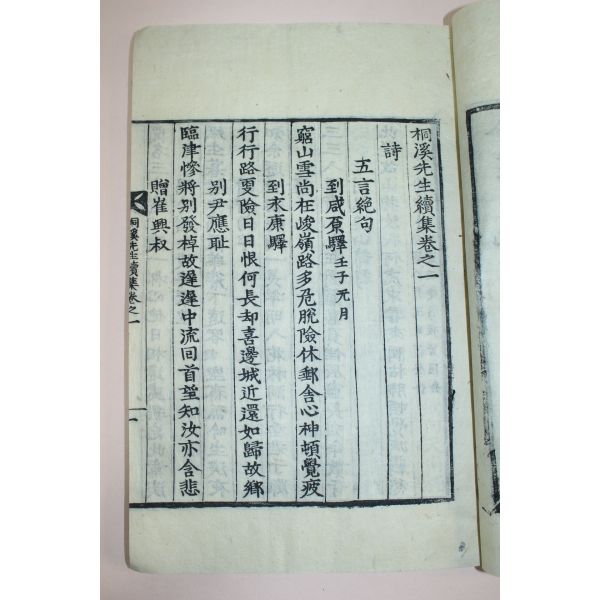 桐溪先生續集卷之一
詩
五言絕句
到咸原驛 壬子元月
窮山雪尚在峻嶺路多危脫險休郵舍心神頓覺疲
到永康驛
行行路夏險日日恨何長却喜邊城近還如歸故鄉
別尹應耻
臨津慘將別發棹故遲遲中流回首望知汝亦含悲
贈崔興叔
桐溪先生續集卷之一
一